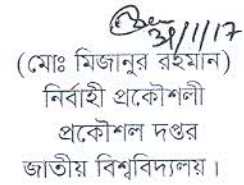 31/1/17
(মোঃ মিজানুর রহমান)
নির্বাহী প্রকৌশলী
প্রকৌশল দপ্তর
জাতীয় বিশ্ববিদ্যালয়।